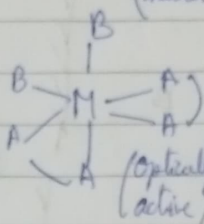 B
B M A
A A
A (Optical
active